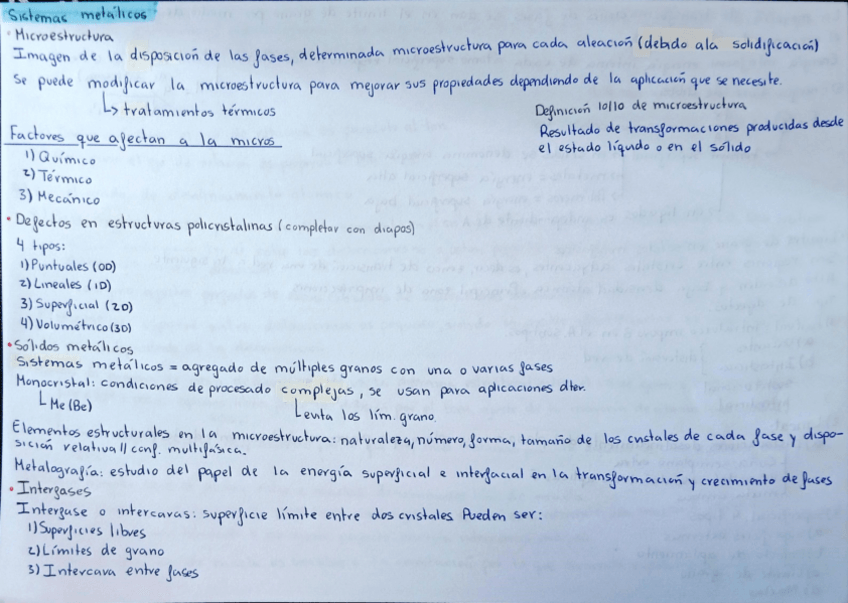 Sistemas metálicos
· Microestructura
Imagen de la disposición de las fases, determinada microestructura para cada aleación (debido a la solidificación)
Se puede modificar la microestructura para mejorar sus propiedades dependiendo de la aplicación que se necesite.
↳ tratamientos térmicos
Definición 10/10 de microestructura
Resultado de transformaciones producidas desde
el estado líqudo o en el sólido
Factores que afectan a la micros
1) Químico
2) Térmico
3) Mecánico
· Defectos en estructuras policristalinas (completar con diapos)
4 tipos:
1) Puntuales (0D)
2) Lineales (1D)
3) Superficial (2D)
4) Volumétrico (3D)
· Sólidos metálicos
Sistemas metálicos = agregado de múltiples granos con una o varias fases
Monocristal: condiciones de procesado complejas, se usan para aplicaciones dter.
↳ Me (Be)
↳ evita los lím. grano
Elementos estructurales en la microestructura: naturaleza, número, forma, tamaño de los cristales de cada fase y dispo-
sición relativa // conf. multifásica.
Metalografía: estudio del papel de la energía superficial e interfacial en la transformación y crecimiento de fases
· Interfases
Interfase o intercaras: superficie límite entre dos cristales Pueden ser:
1) Superficies libres
2) Límites de grano
3) Intercara entre fases